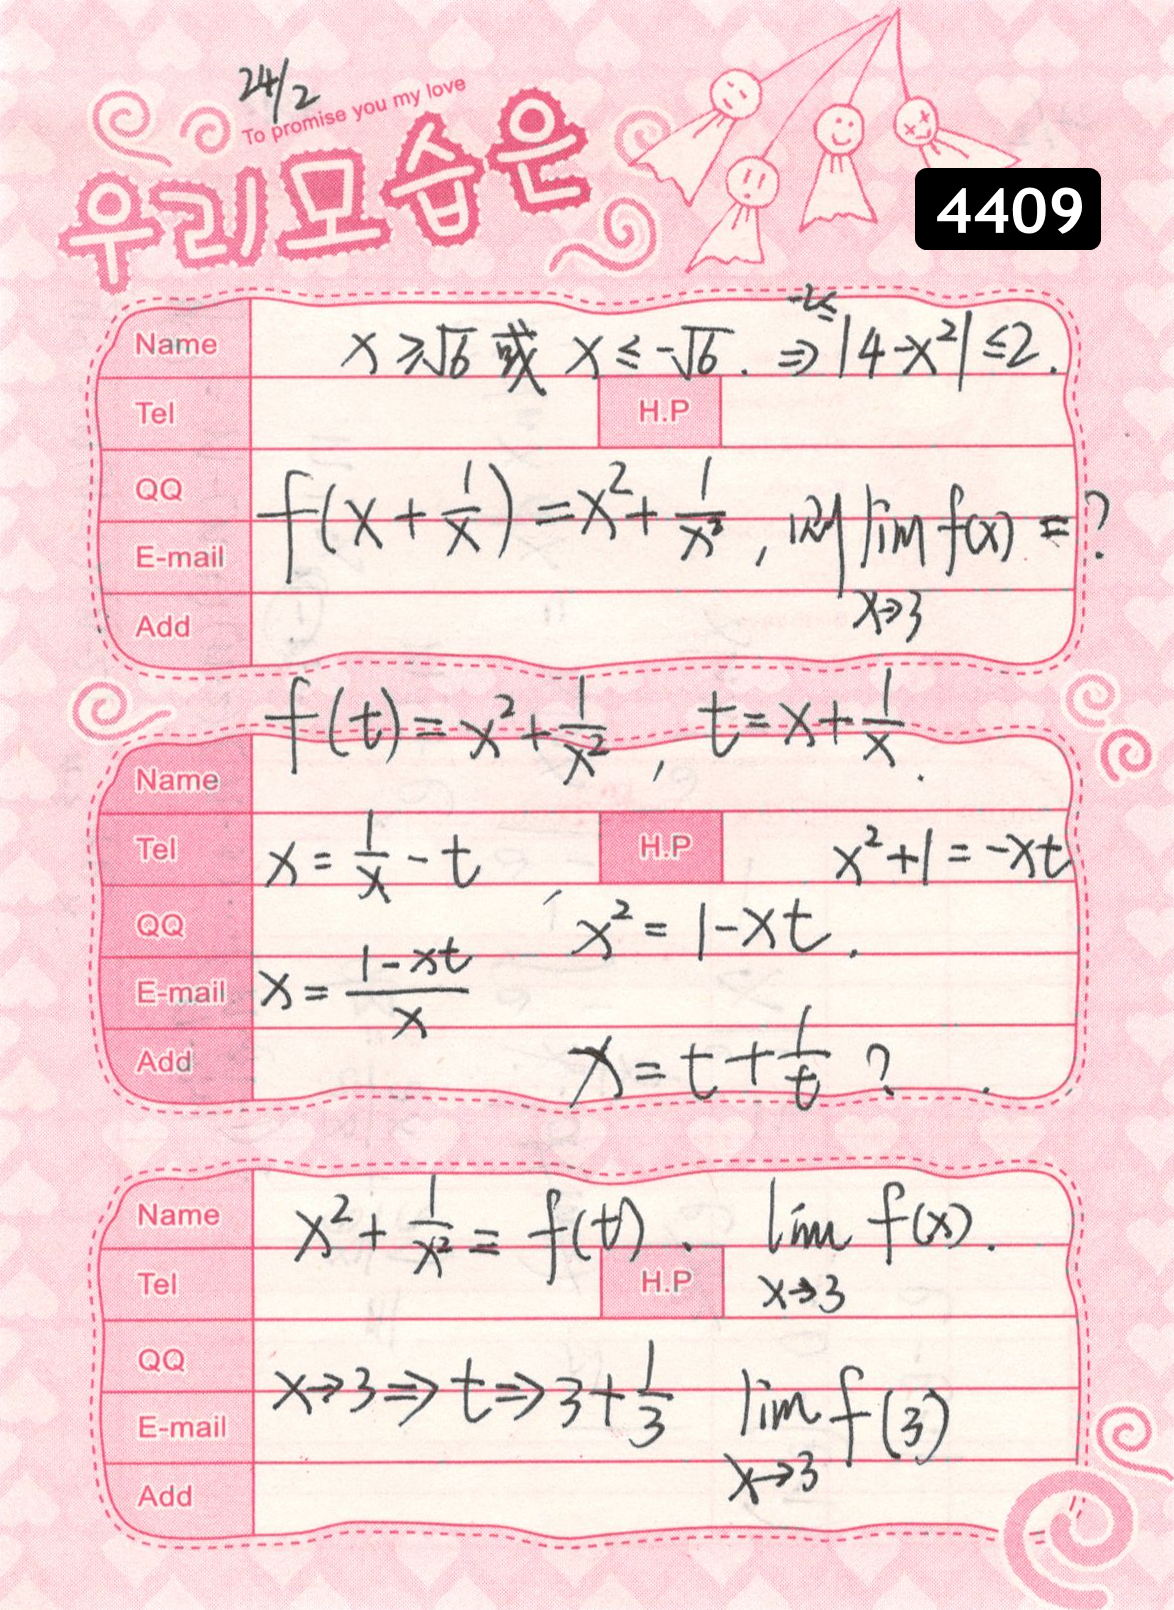 24/2
To promise you my love
우리모습은
4409
Name
-2≤
x ≥ √6 或 x ≤ -√6 . ⇒ |4-x²| ≤ 2 .
Tel H.P
QQ
f(x + 1/x) = x² + 1/x² , 则 lim f(x) = ?
E-mail
x→3
Add
f(t) = x² + 1/x² , t = x + 1/x .
Name
Tel x = 1/x - t H.P x² + 1 = -xt
QQ x² = 1 - xt .
E-mail x = (1-xt)/x
Add x = t + 1/t ?
Name x² + 1/x² = f(t) . lim f(x) .
Tel H.P x→3
QQ
x→3 ⇒ t ⇒ 3 + 1/3 lim f(3)
E-mail
x→3
Add